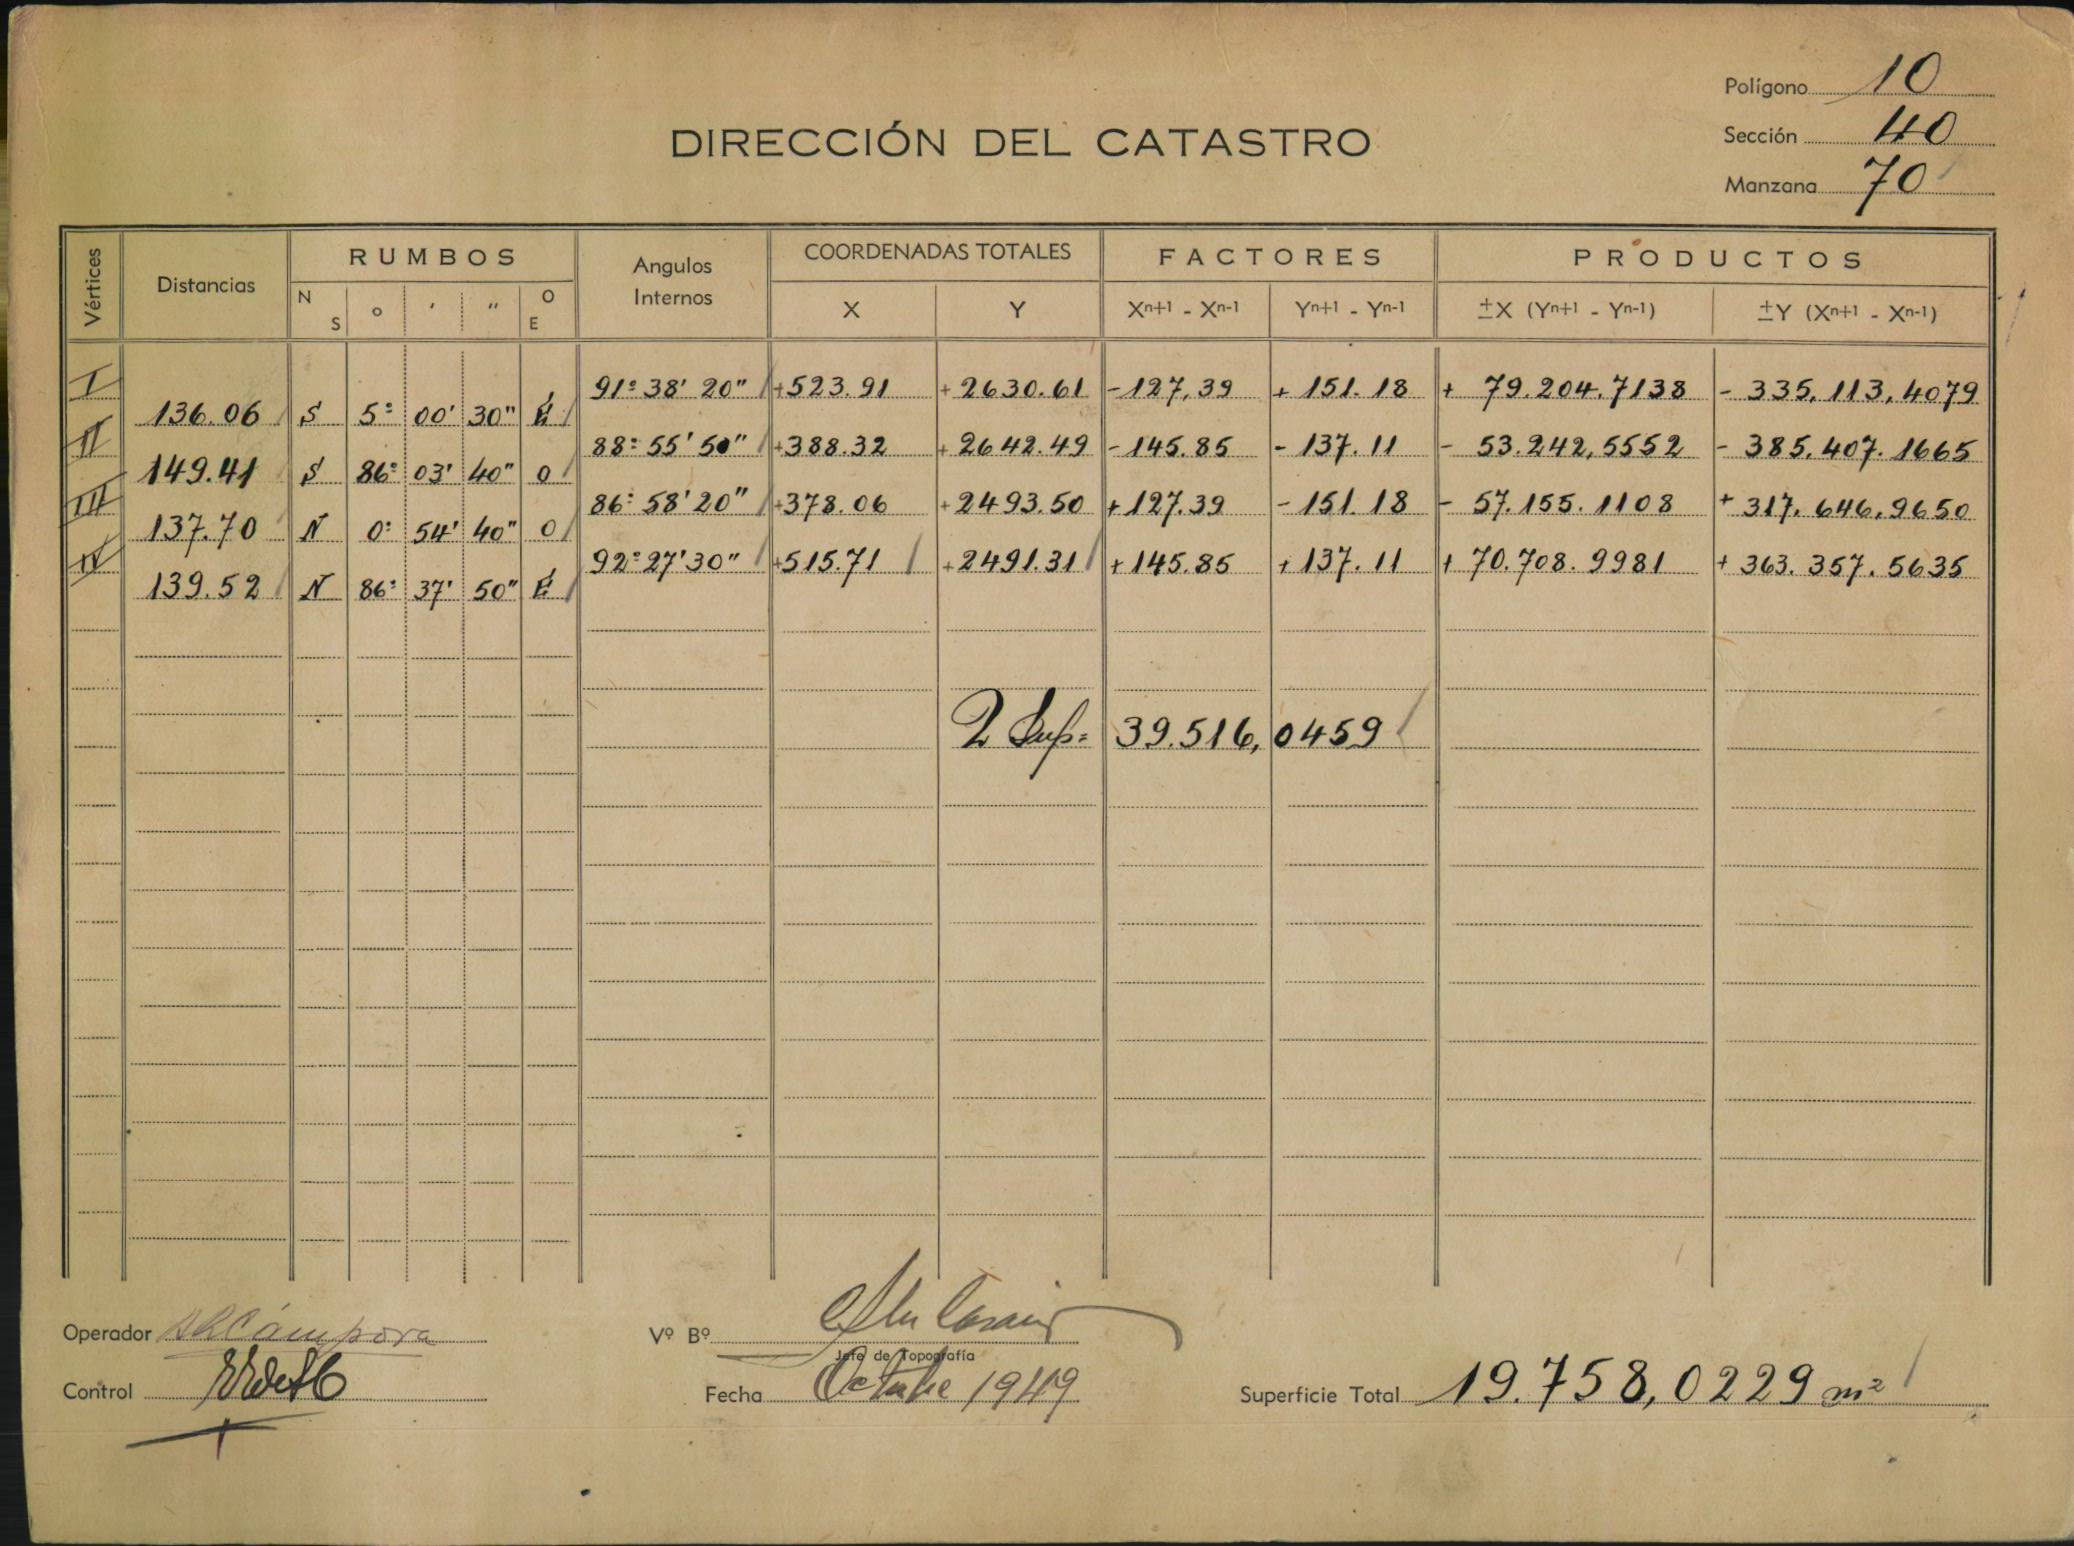 Polígono 10
DIRECCIÓN DEL CATASTRO
Sección 40
Manzana 70
Vértices Distancias RUMBOS Angulos Internos COORDENADAS TOTALES FACTORES PRODUCTOS
N S o ' " O E X Y Xn+1 - Xn-1 Yn+1 - Yn-1 ±X (Yn+1 - Yn-1) ±Y (Xn+1 - Xn-1)
I 91º 38' 20" +523.91 +2630.61 -127,39 +151.18 + 79.204.7138 - 335.113.4079
136.06 S 5º 00' 30" E
II 88º 55' 50" +388.32 +2642.49 -145.85 -137.11 - 53.242,5552 - 385.407.1665
149.41 S 86º 03' 40" O
III 86º 58' 20" +378.06 +2493.50 +127.39 -151.18 - 57.155.1108 + 317.646.9650
137.70 N 0º 54' 40" O
IV 92º 27' 30" +515.71 +2491.31 +145.85 +137.11 + 70.708.9981 + 363.357.5635
139.52 N 86º 37' 50" E
2 Sup. 39.516,0459
Operador
Vº Bº
Jefe de Topografía
Control
Fecha Octubre 1949
Superficie Total 19.758,0229 m²